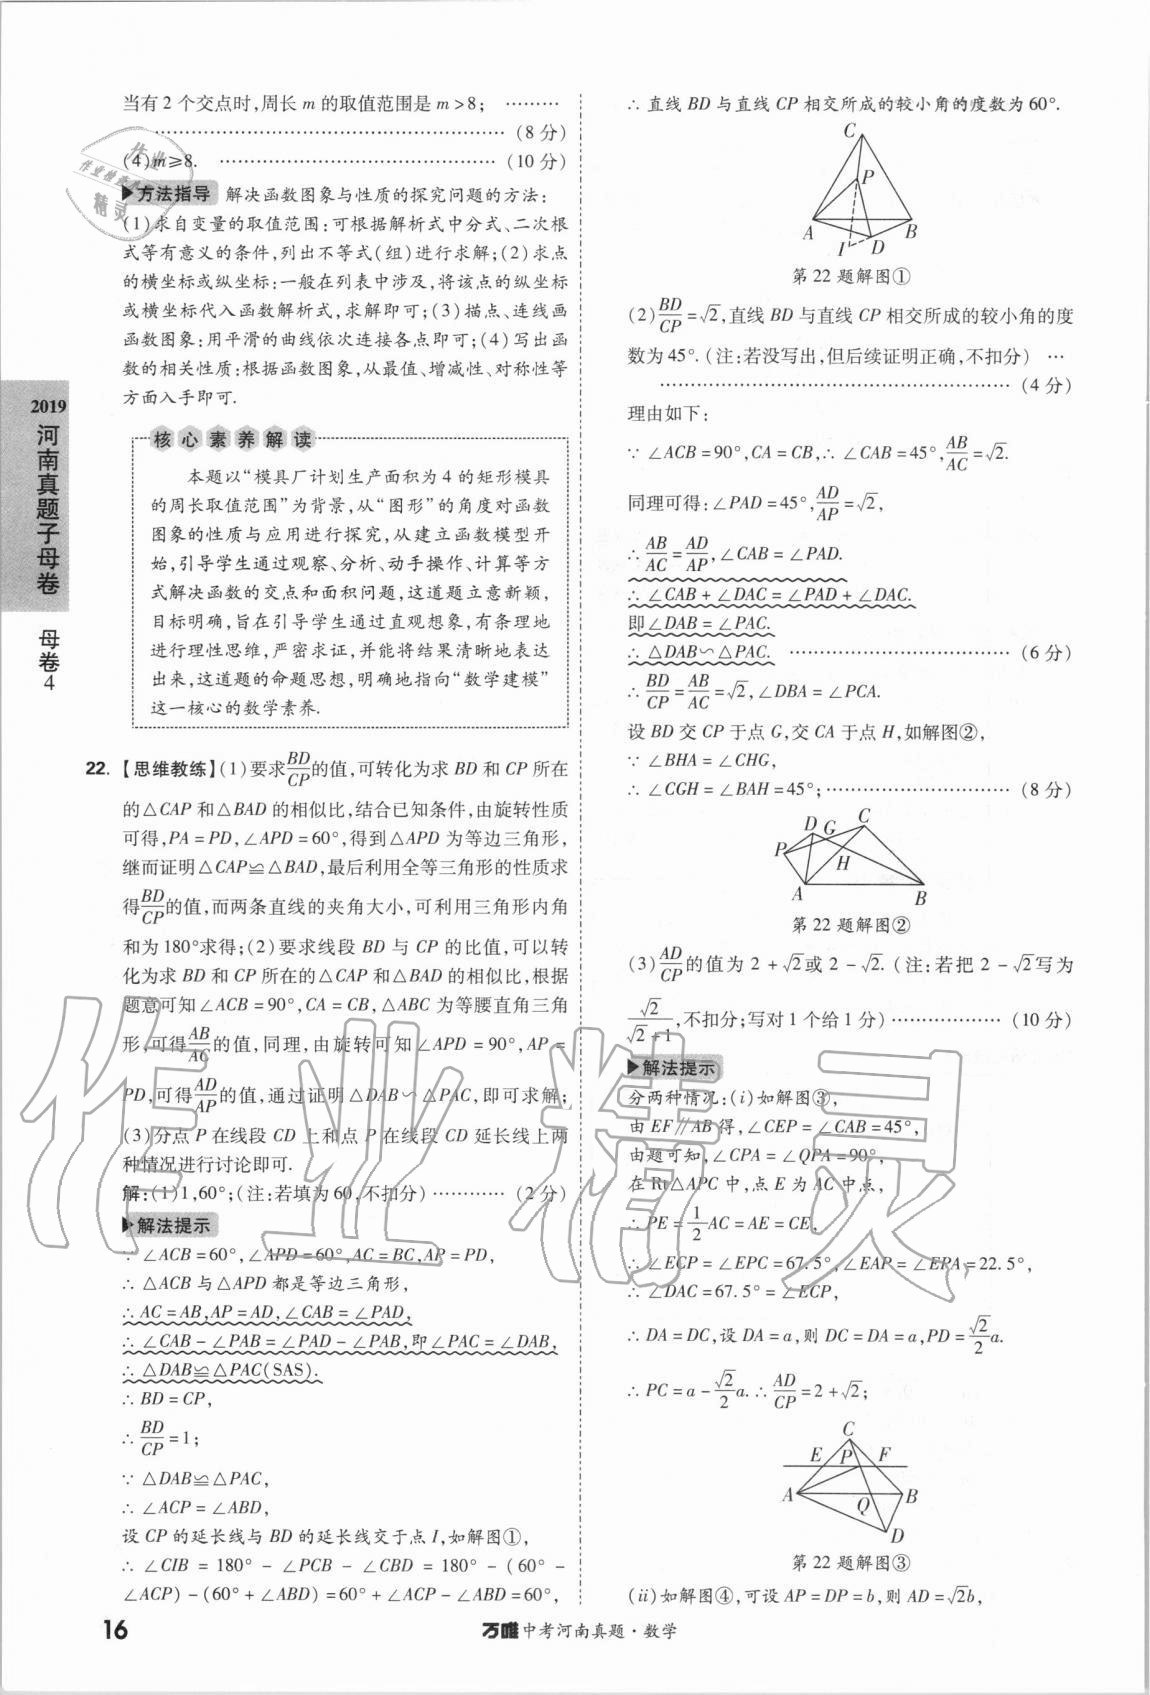 当有 2 个交点时,周长 m 的取值范围是 m>8; ………
………………………………………………… (8 分)
(4)m≥8. ……………………………………… (10 分)
方法指导 解决函数图象与性质的探究问题的方法:
(1)求自变量的取值范围:可根据解析式中分式、二次根
式等有意义的条件,列出不等式(组)进行求解;(2)求点
的横坐标或纵坐标:一般在列表中涉及,将该点的纵坐标
或横坐标代入函数解析式,求解即可;(3)描点、连线画
函数图象:用平滑的曲线依次连接各点即可;(4)写出函
数的相关性质:根据函数图象,从最值、增减性、对称性等
方面入手即可.
核心素养解读
本题以“模具厂计划生产面积为 4 的矩形模具
的周长取值范围”为背景,从“图形”的角度对函数
图象的性质与应用进行探究,从建立函数模型开
始,引导学生通过观察、分析、动手操作、计算等方
式解决函数的交点和面积问题,这道题立意新颖,
目标明确,旨在引导学生通过直观想象,有条理地
进行理性思维,严密求证,并能将结果清晰地表达
出来,这道题的命题思想,明确地指向“数学建模”
这一核心的数学素养.
22. 【思维教练】(1)要求BD/CP的值,可转化为求 BD 和 CP 所在
的△CAP 和△BAD 的相似比,结合已知条件,由旋转性质
可得,PA=PD,∠APD=60°,得到△APD 为等边三角形,
继而证明△CAP≌△BAD,最后利用全等三角形的性质求
得BD/CP的值,而两条直线的夹角大小,可利用三角形内角
和为 180°求得;(2)要求线段 BD 与 CP 的比值,可以转
化为求 BD 和 CP 所在的△CAP 和△BAD 的相似比,根据
题意可知∠ACB=90°,CA=CB,△ABC 为等腰直角三角
形,可得AB/AC的值,同理,由旋转可知∠APD=90°,AP=
PD,可得AD/AP的值,通过证明△DAB∽△PAC,即可求解;
(3)分点 P 在线段 CD 上和点 P 在线段 CD 延长线上两
种情况进行讨论即可.
解:(1)1,60°;(注:若填为 60,不扣分) ………… (2 分)
解法提示
∵ ∠ACB=60°,∠APD=60°,AC=BC,AP=PD,
∴ △ACB 与△APD 都是等边三角形,
∴ AC=AB,AP=AD,∠CAB=∠PAD,
∴ ∠CAB-∠PAB=∠PAD-∠PAB,即∠PAC=∠DAB,
∴ △DAB≌△PAC(SAS).
∴ BD=CP,
∴ BD/CP=1;
∵ △DAB≌△PAC,
∴ ∠ACP=∠ABD,
设 CP 的延长线与 BD 的延长线交于点 I,如解图①,
∴ ∠CIB = 180° - ∠PCB - ∠CBD = 180° - (60° -
∠ACP)-(60°+∠ABD)=60°+∠ACP-∠ABD=60°,
∴ 直线 BD 与直线 CP 相交所成的较小角的度数为 60°.
C
P
A
B
I
D
第 22 题解图①
(2)BD/CP=√2,直线 BD 与直线 CP 相交所成的较小角的度
数为 45°.(注:若没写出,但后续证明正确,不扣分) …
………………………………………………… (4 分)
理由如下:
∵ ∠ACB=90°,CA=CB,∴ ∠CAB=45°,AB/AC=√2.
同理可得:∠PAD=45°,AD/AP=√2,
∴ AB/AC=AD/AP,∠CAB=∠PAD.
∴ ∠CAB+∠DAC=∠PAD+∠DAC.
即∠DAB=∠PAC.
∴ △DAB∽△PAC. ……………………………… (6 分)
∴ BD/CP=AB/AC=√2,∠DBA=∠PCA.
设 BD 交 CP 于点 G,交 CA 于点 H,如解图②,
∵ ∠BHA=∠CHG,
∴ ∠CGH=∠BAH=45°;………………………… (8 分)
D
G
C
P
H
A
B
第 22 题解图②
(3)AD/CP的值为 2+√2或 2-√2.(注:若把 2-√2写为
√2/(√2+1),不扣分;写对 1 个给 1 分) ……………… (10 分)
解法提示
分两种情况:(i)如解图③,
由 EF∥AB 得,∠CEP=∠CAB=45°,
由题可知,∠CPA=∠QPA=90°,
在 Rt△APC 中,点 E 为 AC 中点,
∴ PE=1/2AC=AE=CE,
∴ ∠ECP=∠EPC=67.5°,∠EAP=∠EPA=22.5°,
∴ ∠DAC=67.5°=∠ECP,
∴ DA=DC,设 DA=a,则 DC=DA=a,PD=√2/2a.
∴ PC=a-√2/2a.∴ AD/CP=2+√2;
C
E
P
F
A
Q
B
D
第 22 题解图③
(ii)如解图④,可设 AP=DP=b,则 AD=√2b,
2019
河南真题子母卷
母卷4
16
万唯中考河南真题·数学
作业
作业检查
精灵
作业精灵